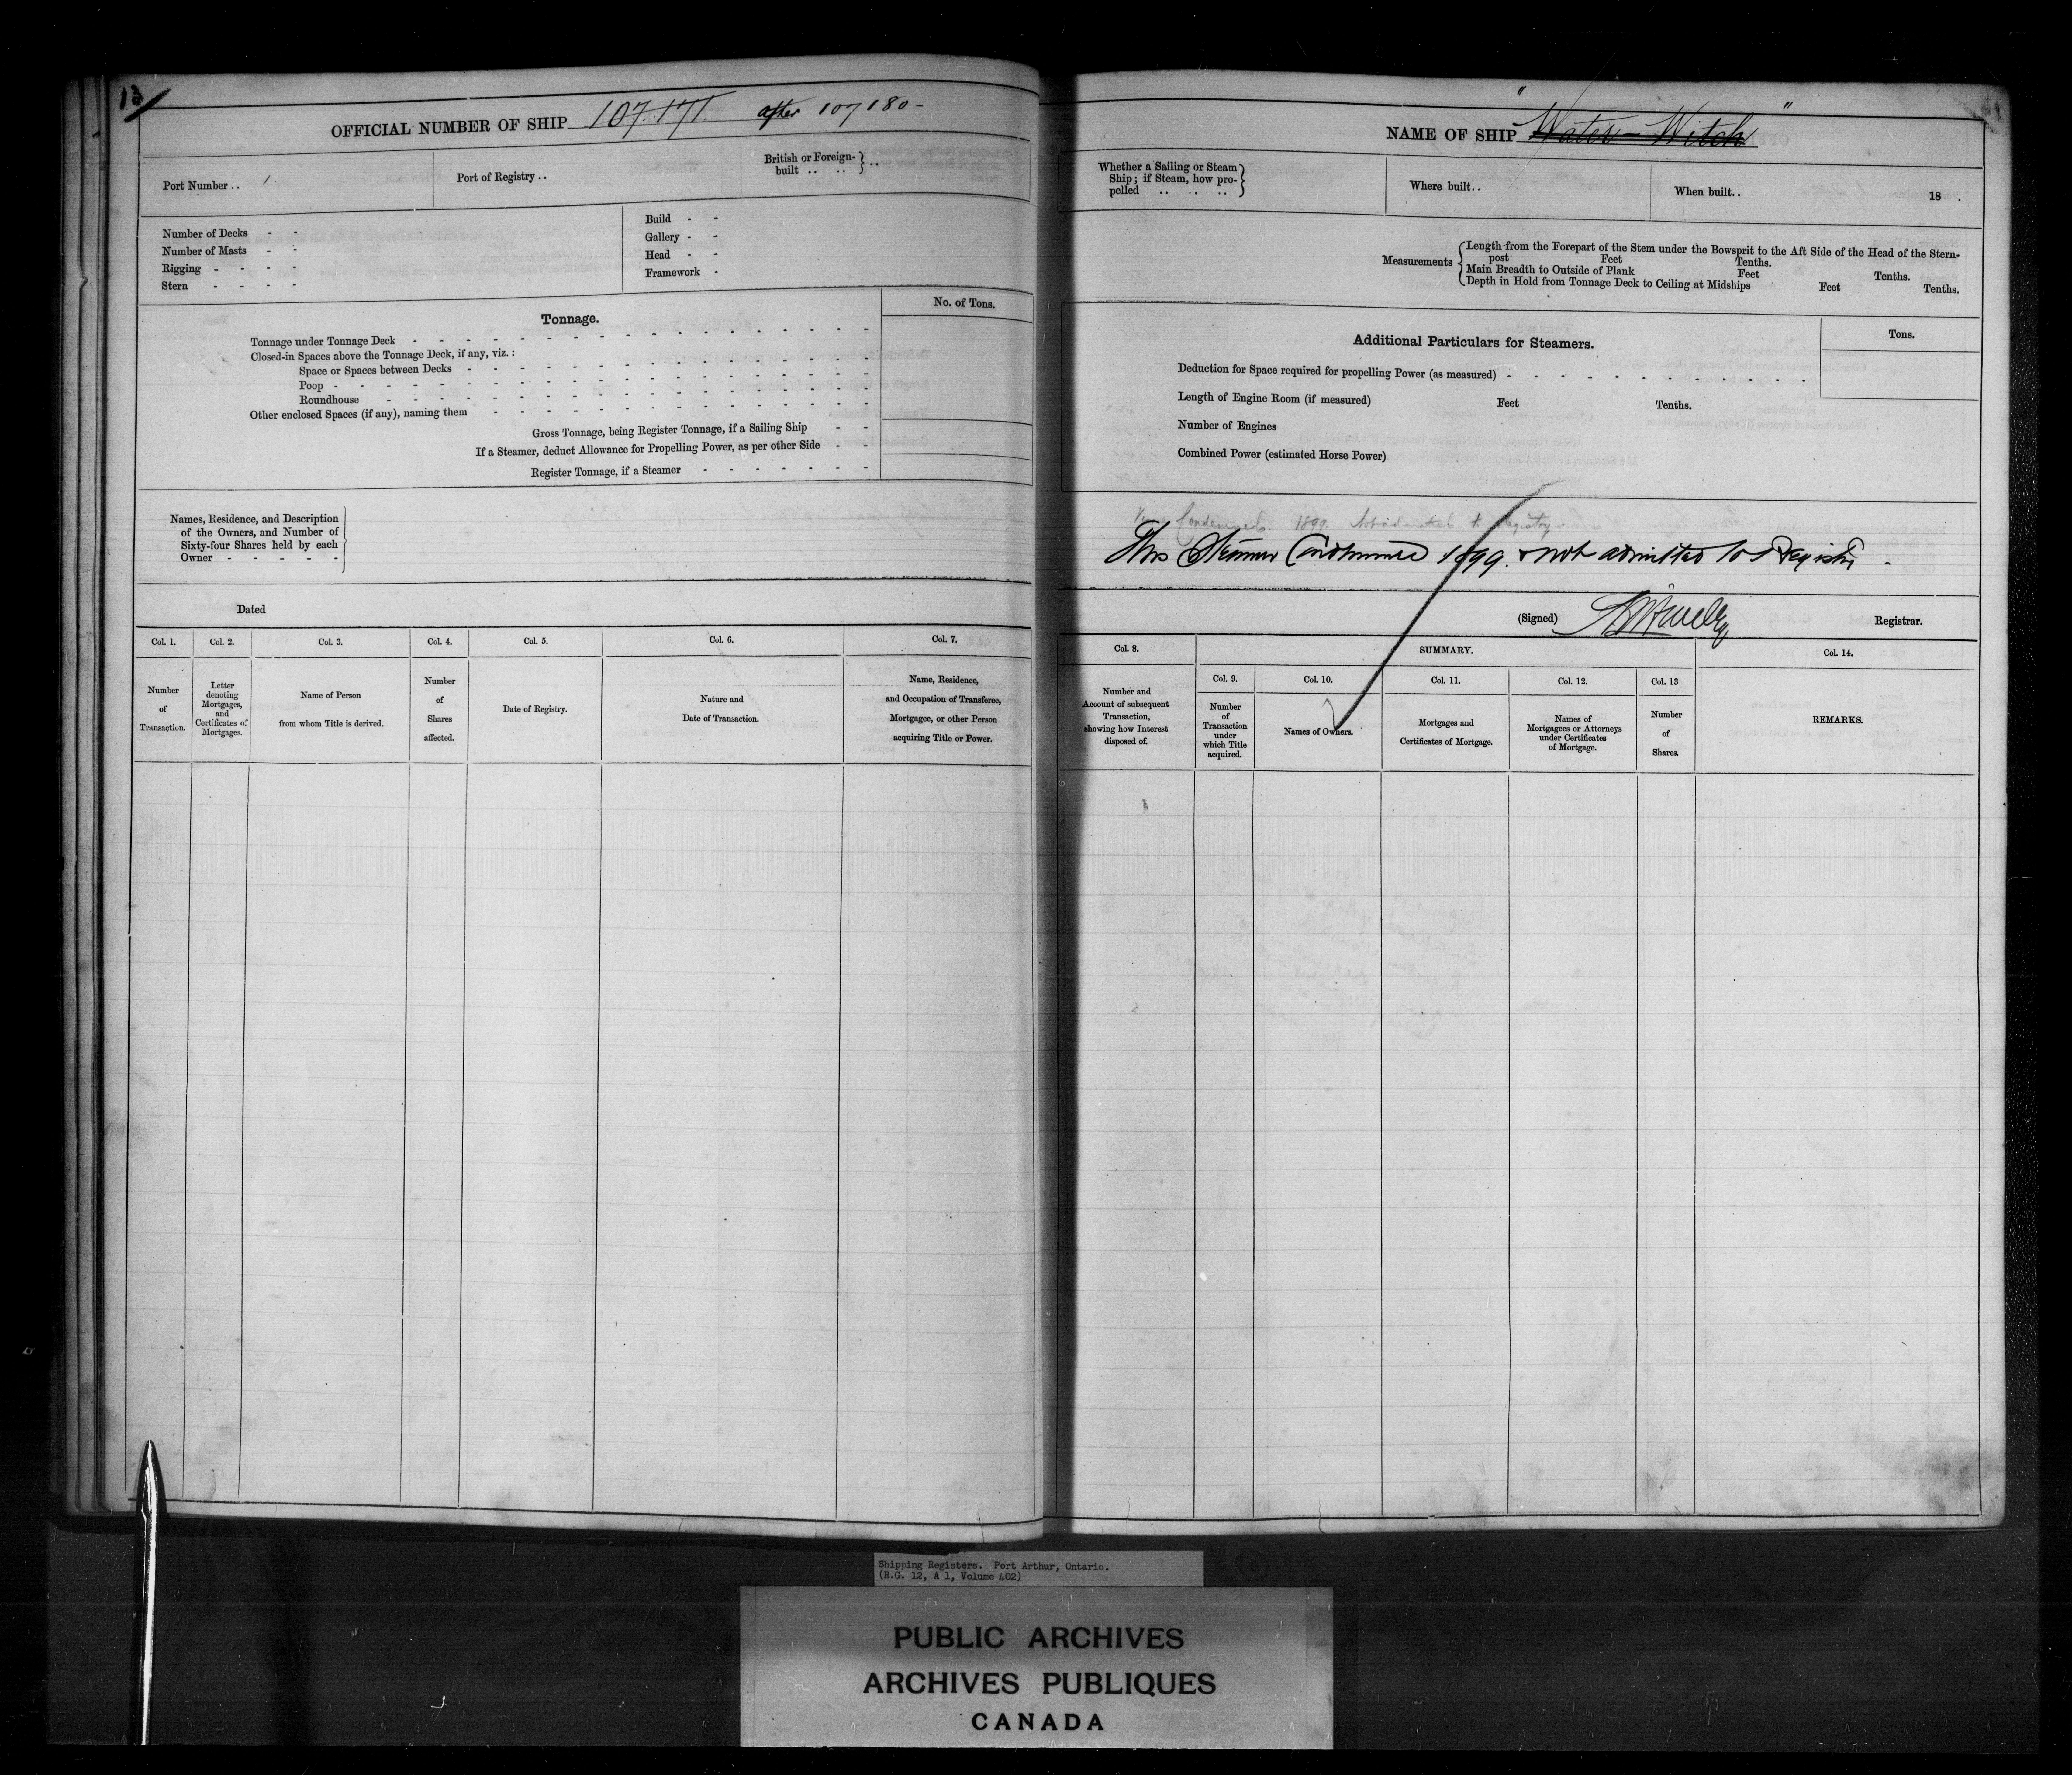 13
OFFICIAL NUMBER OF SHIP 107.171 after 107180-
Port Number .. 1
Port of Registry ..
British or Foreign-
built .. .. ..
Number of Decks - -
Number of Masts - -
Rigging - - - -
Stern - - - -
Build - -
Gallery - -
Head - -
Framework -
Tonnage.
No. of Tons.
Tonnage under Tonnage Deck
Closed-in Spaces above the Tonnage Deck, if any, viz. :
Space or Spaces between Decks
Poop
Roundhouse
Other enclosed Spaces (if any), naming them
Gross Tonnage, being Register Tonnage, if a Sailing Ship - -
If a Steamer, deduct Allowance for Propelling Power, as per other Side - -
Register Tonnage, if a Steamer - - - - - - -
Names, Residence, and Description
of the Owners, and Number of
Sixty-four Shares held by each
Owner - - - - -
Dated
Col. 1. Col. 2. Col. 3. Col. 4. Col. 5. Col. 6. Col. 7.
Number
of
Transaction.
Letter
denoting
Mortgages,
and
Certificates of
Mortgages.
Name of Person
from whom Title is derived.
Number
of
Shares
affected.
Date of Registry.
Nature and
Date of Transaction.
Name, Residence,
and Occupation of Transferee,
Mortgagee, or other Person
acquiring Title or Power.
NAME OF SHIP "Water-Witch"
Whether a Sailing or Steam
Ship; if Steam, how pro-
pelled .. .. ..
Where built..
When built.. 18 .
Measurements
Length from the Forepart of the Stem under the Bowsprit to the Aft Side of the Head of the Stern-
post Feet Tenths.
Main Breadth to Outside of Plank Feet Tenths.
Depth in Hold from Tonnage Deck to Ceiling at Midships Feet Tenths.
Additional Particulars for Steamers.
Tons.
Deduction for Space required for propelling Power (as measured)
Length of Engine Room (if measured) Feet Tenths.
Number of Engines
Combined Power (estimated Horse Power)
Condemned. 1899. Not admitted to registry
This Steamer Condemned 1899. & not admitted to Registry -
(Signed) Registrar.
Col. 8.
SUMMARY.
Col. 14.
Col. 9. Col. 10. Col. 11. Col. 12. Col. 13
Number and
Account of subsequent
Transaction,
showing how Interest
disposed of.
Number
of
Transaction
under
which Title
acquired.
Names of Owners.
Mortgages and
Certificates of Mortgage.
Names of
Mortgagees or Attorneys
under Certificates
of Mortgage.
Number
of
Shares.
REMARKS.
Shipping Registers. Port Arthur, Ontario.
(R.G. 12, A 1, Volume 402)
PUBLIC ARCHIVES
ARCHIVES PUBLIQUES
CANADA